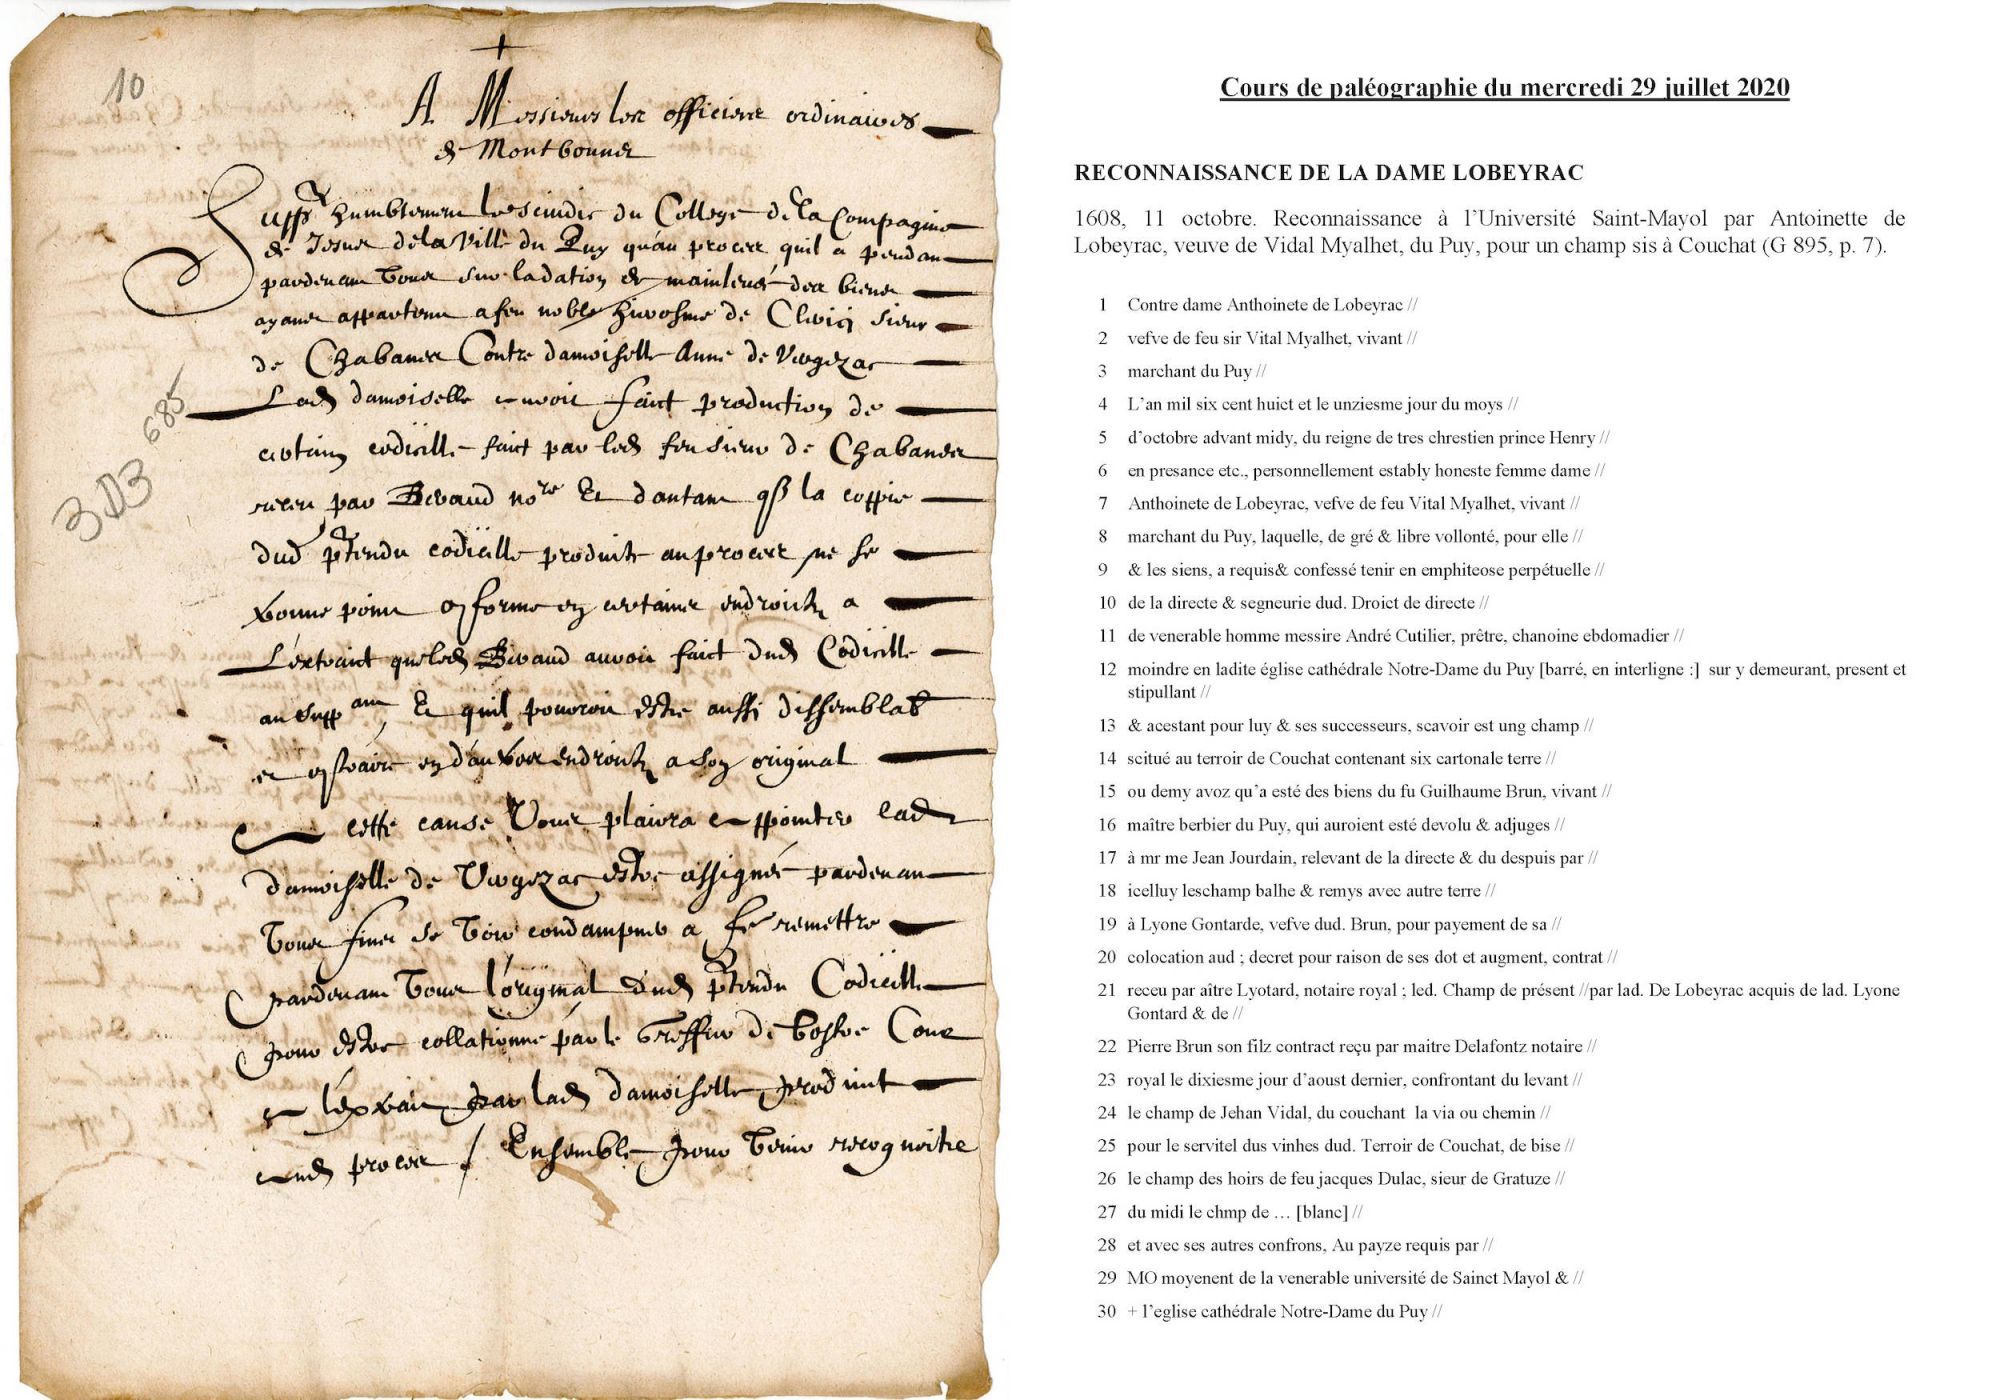 10
A Messieurs les officiers ordinaires
de Montbonnet
Supp humblement le scindic du College de la Compagnie
de Jesus de la Ville du Puy qu'au proces quil a pendant
pardevant Vous sur ladation de mainlevée des biens
ayant appartenu a feu noble hierosme de Clerici sieur
de Chabanes Contre damoiselle Anne de Vergezac
Lad damoiselle auroit faict production de
certain codicille faict par led feu sieur de Chabanes
receu par Beraud nore Et dautant q la coppie
dud ptendu codicille produite au proces ne se
trouve point conforme en certaines endroictz a
L'extraict que led Beraud auroit faict dud Codicille
au supp ant Et quil pourroit estre aussi dissemblab
et contraire en d'autres endroictz a son original
cette cause Vous plairra appointer lad
damoiselle de Vergezac estre assignée pardevant
Vous fins se Voir condampner a remettre
pardevant Vous l'original dud ptendu Codicille
pour estre collationné par le Greffier de Vostre Cour
a l'extraict par lad damoiselle produict
aud proces / Ensemble pour Venir recognoitre
3D3 685
Cours de paléographie du mercredi 29 juillet 2020
RECONNAISSANCE DE LA DAME LOBEYRAC
1608, 11 octobre. Reconnaissance à l'Université Saint-Mayol par Antoinette de
Lobeyrac, veuve de Vidal Myalhet, du Puy, pour un champ sis à Couchat (G 895, p. 7).
1 Contre dame Anthoinete de Lobeyrac //
2 vefve de feu sir Vital Myalhet, vivant //
3 marchant du Puy //
4 L'an mil six cent huict et le unziesme jour du moys //
5 d'octobre advant midy, du reigne de tres chrestien prince Henry //
6 en presance etc., personnellement estably honeste femme dame //
7 Anthoinete de Lobeyrac, vefve de feu Vital Myalhet, vivant //
8 marchant du Puy, laquelle, de gré & libre vollonté, pour elle //
9 & les siens, a requis& confessé tenir en emphiteose perpétuelle //
10 de la directe & segneurie dud. Droict de directe //
11 de venerable homme messire André Cutilier, prêtre, chanoine ebdomadier //
12 moindre en ladite église cathédrale Notre-Dame du Puy [barré, en interligne :] sur y demeurant, present et
stipullant //
13 & acestant pour luy & ses successeurs, scavoir est ung champ //
14 scitué au terroir de Couchat contenant six cartonale terre //
15 ou demy avoz qu'a esté des biens du fu Guilhaume Brun, vivant //
16 maître berbier du Puy, qui auroient esté devolu & adjuges //
17 à mr me Jean Jourdain, relevant de la directe & du despuis par //
18 icelluy leschamp balhe & remys avec autre terre //
19 à Lyone Gontarde, vefve dud. Brun, pour payement de sa //
20 colocation aud ; decret pour raison de ses dot et augment, contrat //
21 receu par aître Lyotard, notaire royal ; led. Champ de présent //par lad. De Lobeyrac acquis de lad. Lyone
Gontard & de //
22 Pierre Brun son filz contract reçu par maitre Delafontz notaire //
23 royal le dixiesme jour d'aoust dernier, confrontant du levant //
24 le champ de Jehan Vidal, du couchant la via ou chemin //
25 pour le servitel dus vinhes dud. Terroir de Couchat, de bise //
26 le champ des hoirs de feu jacques Dulac, sieur de Gratuze //
27 du midi le chmp de … [blanc] //
28 et avec ses autres confrons, Au payze requis par //
29 MO moyenent de la venerable université de Sainct Mayol & //
30 + l'eglise cathédrale Notre-Dame du Puy //